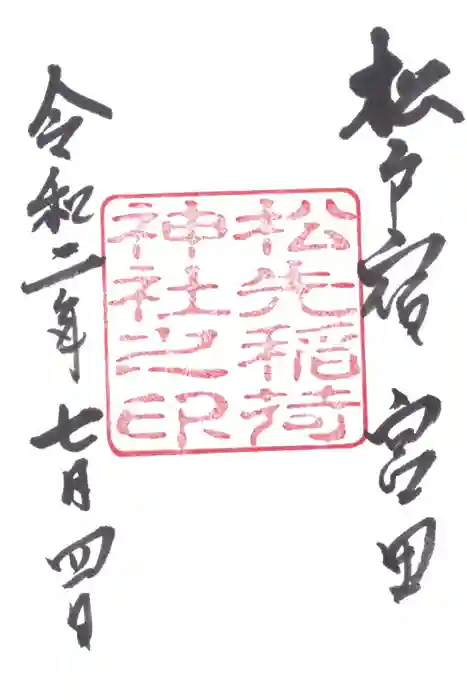 松戸宿 宮田
松先稲荷
神社之印
令和二年 七月四日